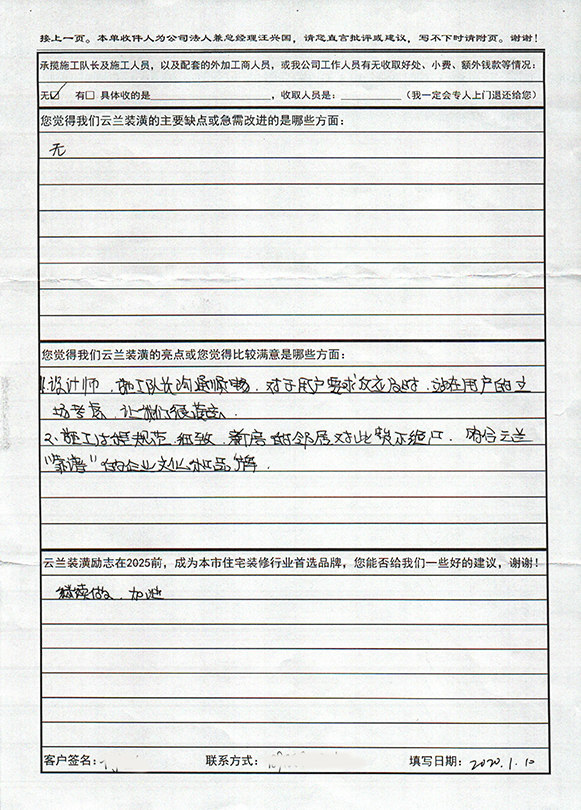 接上一页。本单收件人为公司法人兼总经理汪兴国，请您直言批评或建议，写不下时请附页。谢谢！
承揽施工队长及施工人员，以及配套的外加工商人员，或我公司工作人员有无收取好处、小费、额外钱款等情况：
无☑ 有□ 具体收的是________，收取人员是：________（我一定会专人上门退还给您）
您觉得我们云兰装潢的主要缺点或急需改进的是哪些方面：
无
您觉得我们云兰装潢的亮点或您觉得比较满意是哪些方面：
1.设计师、施工队长沟通顺畅，对于用户要求反应及时，站在用户的立
场考虑，让我们很满意。
2、施工过程规范、细致，新房的邻居对此赞不绝口，符合云兰
“靠谱”的企业文化和品牌。
云兰装潢励志在2025前，成为本市住宅装修行业首选品牌，您能否给我们一些好的建议，谢谢！
继续做，加油
客户签名： 联系方式： 填写日期：2020.1.10